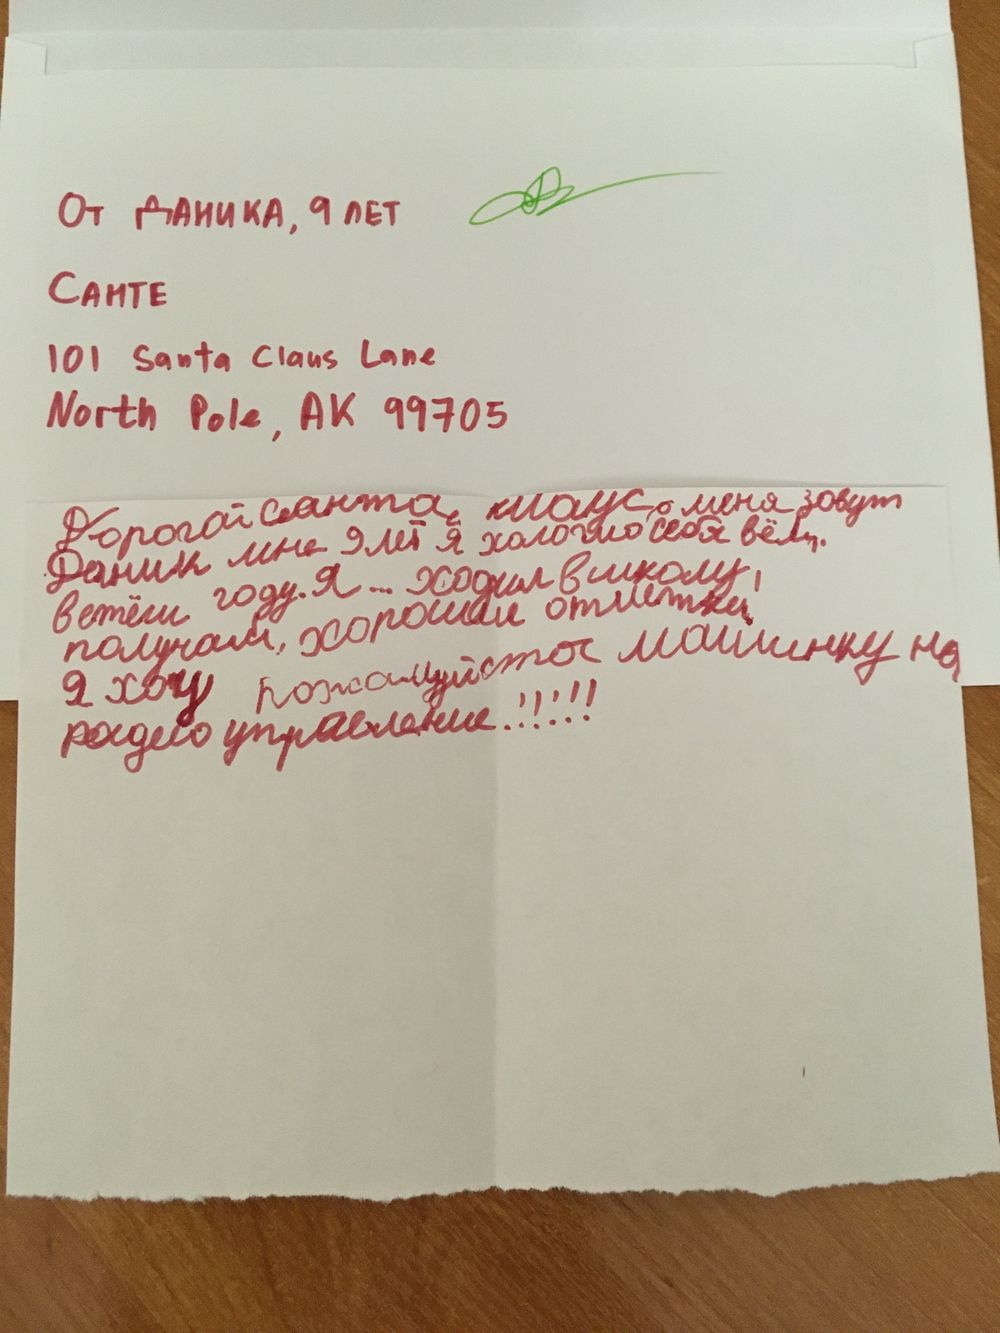 От Даника, 9 лет
Санте
101 Santa Claus Lane
North Pole, AK 99705
Дорогой санта, клаус, меня зовут
Даник мне 9 лет я себя вёл
году. Я... ходил в школу,
получал, хорошии отметки,
я хочу пожалуйста машинку на
радео управление!!!!!!